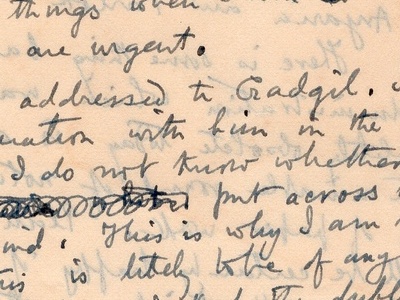 things when
are urgent.
addressed to Gadgil.
uation with him in the
I do not know whether
put across
ind. This is why I am
is likely to be of any